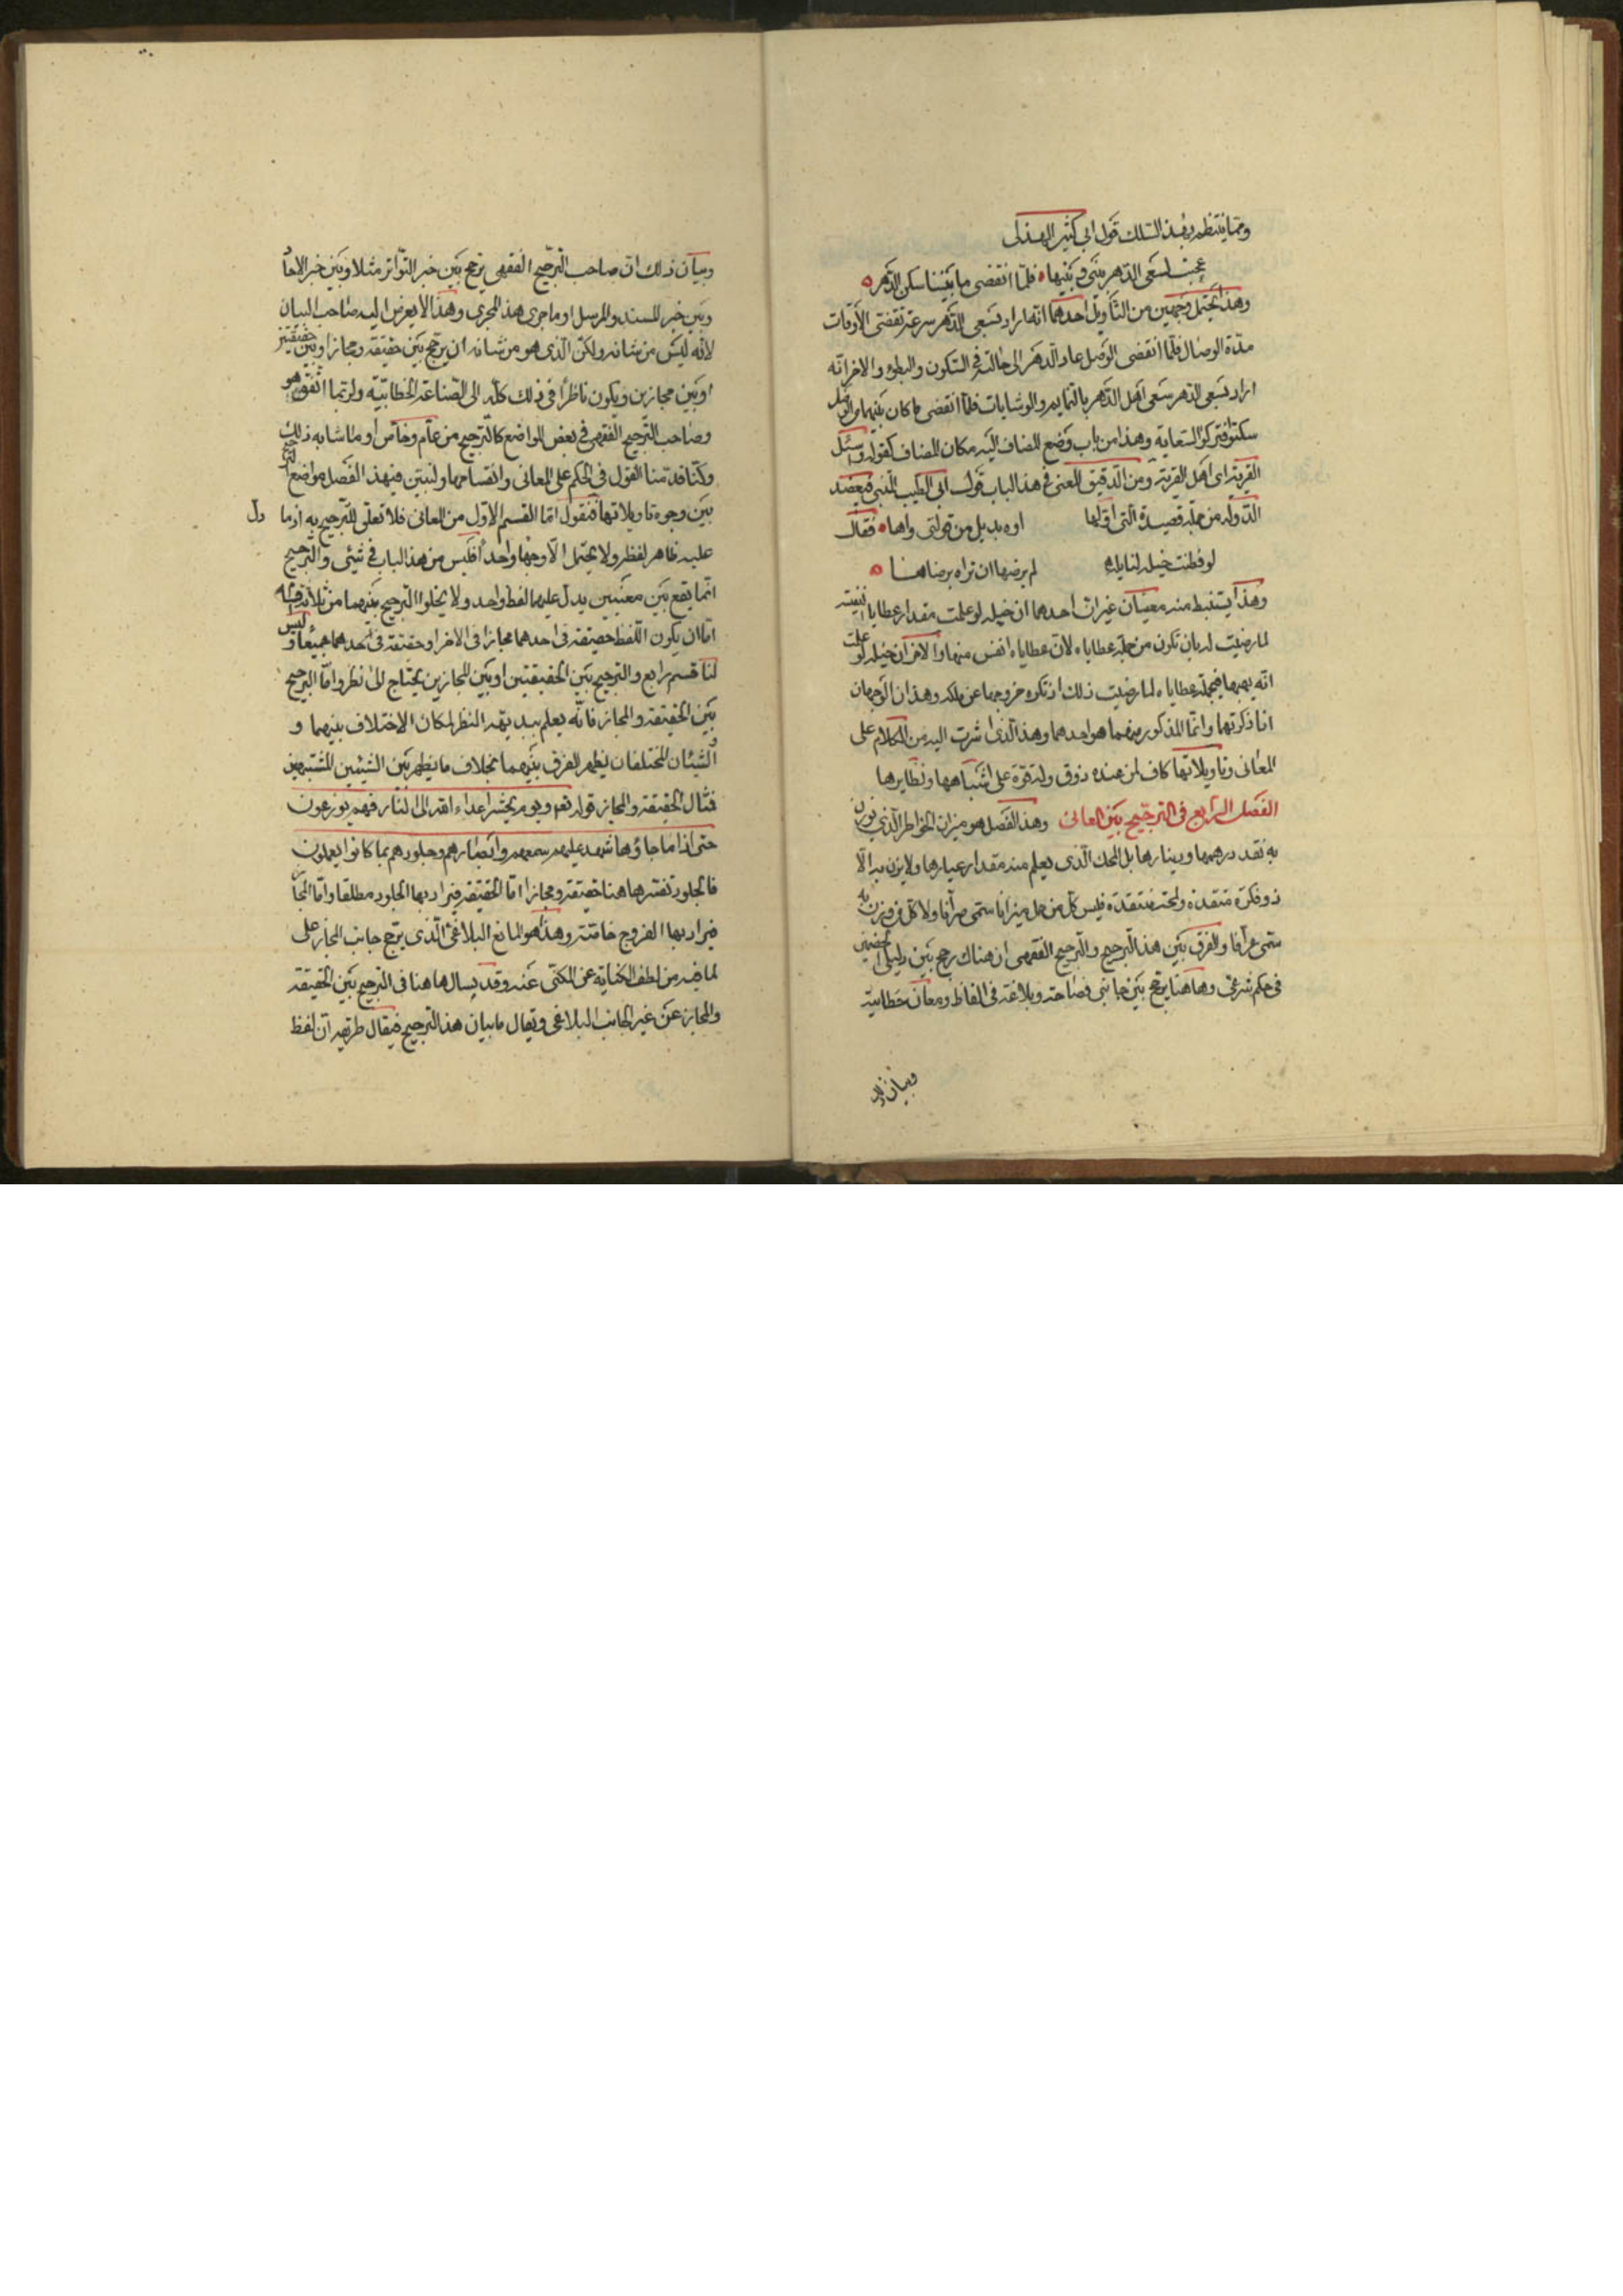 ومما ينتظم بهذا السلك قول ابي كثير الهذلى
عجبت لسعى الدهر بينى وبينها فلما انقضى ما بيننا سكن الدهر
وهذا يحتمل وجهين من التأويل احدهما انه اراد بسعى الدهر سرعة تقضى الاوقات
مدة الوصال فلما انقضى الوصل عاد الدهر الى حالته فى السكون والبطوء والاخر انه
اراد بسعى الدهر سعى اهل الدهر بالنمايم والوشايات فلما انقضى ما كان بينهما من الوصل
سكنوا وتركوا السعاية وهذا من باب وضع المضاف اليه مكان المضاف كقوله واسئل
القرية اى اهل القرية ومن الدقيق المعنى فى هذا الباب قول ابى الطيب المتنبى فى عضد
الدولة من جملة قصيدة التى اولها اوه بديل من قولتى واها فقال
لو فطنت خيله لنايله لم يرضها ان تراه يرضاها
وهذا يستنبط منه معنيان غيران احدهما ان خيله لو علمت مقدار عطاياه النفيسة
لما رضيت له بان تكون من جملة عطاياه لان عطاياه انفس منها والاخر ان خيله لو علمت
انه يهبها فى جملة عطاياه لما رضيت ذلك اذ تكره خروجها عن ملكه وهذان الوجهان
انا ذكرتها وانما المذكور منهما هو احدهما وهذا الذى اشرت اليه من الكلام على
المعانى وتاويلاتها كاف لمن عنده ذوق وله قوة على اشباهها ونظايرها
الفصل الرابع فى الترجيح بين المعانى وهذا الفصل هو ميزان الخواطر الذى يوزن
به نقد درهمها ودينارها بل المحك الذى يعلم منه مقدار عيارها ولا يزن به الا
ذو فكرة متقدة ولمحة منتقدة فليس كل من حمل ميزانا سمى صرافا ولا كل من وزن به
سمى عرافا والفرق بين هذا الترجيح والترجيح الفقهى ان هناك يرجح بين دليلى الخصمين
فى حكم شرعى وهاهنا يرجح بين جانبى فصاحة وبلاغة فى الفاظ ومعان خطابية
وبيان ذلك
وبيان ذلك ان صاحب الترجيح الفقهى يرجح بين خبر التواتر مثلا وبين خبر الاحاد
وبين خبر المسند والمرسل او ما جرى هذا المجرى وهذا لا يعرض اليه صاحب البيان
لانه ليس من شانه ولكن الذى هو من شانه ان يرجح بين حقيقة ومجاز او بين حقيقتين
او بين مجازين ويكون ناظرا فى ذلك كله الى الصناعة الخطابية ولربما اتفق هو
وصاحب الترجيح الفقهى فى بعض المواضع كالترجيح من عام وخاص او ما شابه ذلك
وكنا قدمنا القول فى الحكم على المعانى وانقسامها ولنبين فى هذا الفصل مواضع الترجيح
بين وجوه تاويلاتها فنقول اما القسم الاول من المعانى فلا تعلق للترجيح به اذ ما دل
عليه ظاهر لفظه ولا يحتمل الا وجها واحدا فليس من هذا الباب فى شيئ والترجيح
انما يقع بين معنيين يدل عليهما لفظ واحد ولا يخلوا الترجيح بينهما من ثلاثة اقسام
اما ان يكون اللفظ حقيقة فى احدهما مجازا فى الاخر او حقيقة فى احدهما جميعا وليس
لنا قسم رابع والترجيح بين الحقيقتين او بين المجازين يحتاج الى نظر واما الترجيح
بين الحقيقة والمجاز فانه يعلم ببديهة النظر لمكان الاختلاف بينهما و
الشيئان المختلفان يظهر الفرق بينهما بخلاف ما يظهر بين الشيئين المشتبهين
فمثال الحقيقة والمجاز قوله تعه ويوم يحشر اعداء الله الى النار فهم يوزعون
حتى اذا ما جاؤها شهد عليهم سمعهم وابصارهم وجلودهم بما كانوا يعملون
فالجلود تفسر هاهنا حقيقة ومجازا اما الحقيقة فيراد بها الجلود مطلقا واما المجاز
فيراد بها الفروج خاصة وهذا هو المانع البلاغى الذى يرجح جانب المجاز على
لما فيه من لطف الكناية عن المكنى عنه وقد يسال هاهنا فى الترجيح بين الحقيقة
والمجاز عن غير الجانب البلاغى ويقال ما بيان هذا الترجيح فيقال طريقه ان لفظ